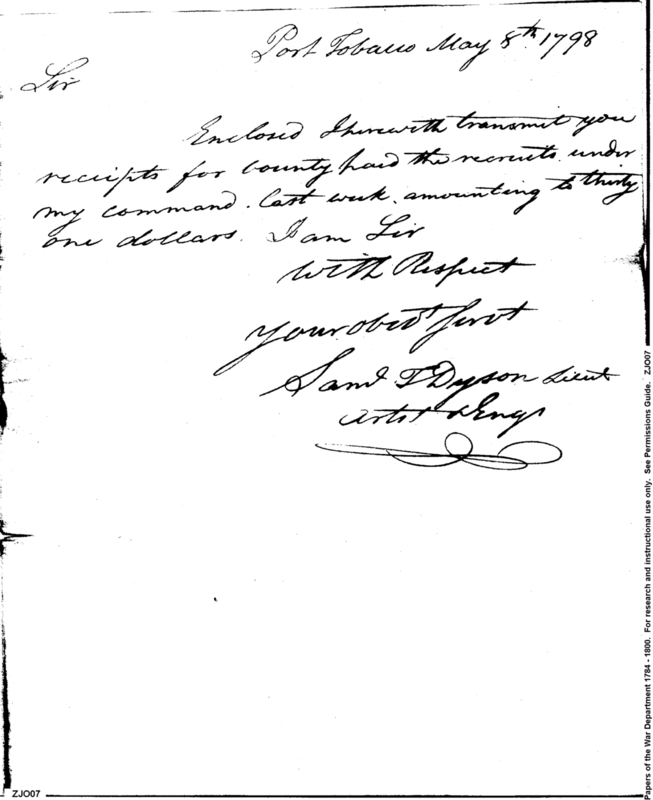 Port Tobacco May 8th. 1798
Sir
Enclosed I herewith transmit you
receipts for bounty paid the recruits under
my command. last week. amounting to thirty
one dollars. I am Sir
With Respect
Your obedt Servt
Saml T Dyson Lieut
Artist & Engs
ZJO07
Papers of the War Department 1784 - 1800. For research and instructional use only. See Permissions Guide. ZJO07